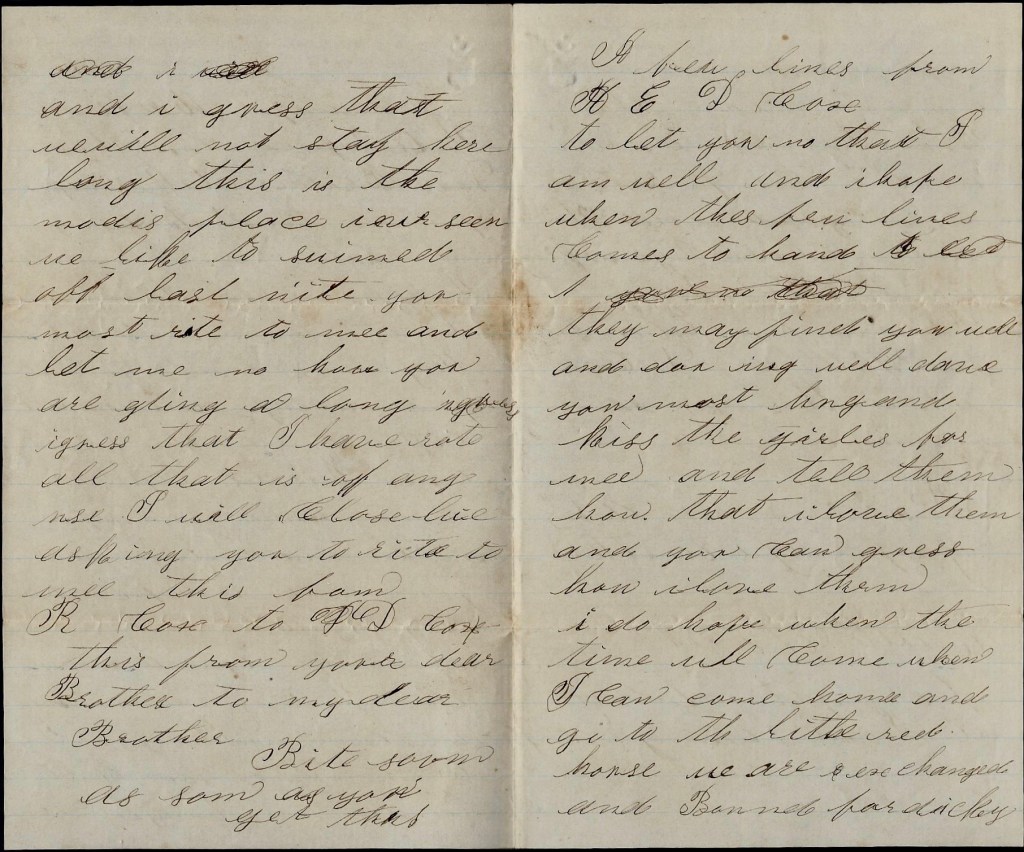 and i will
and i guess that
we will not stay here
long this is the
modis place i evr seen
we like to suimed
off last nite you
most rite to mee and
let me no how you
are gting a long
i guess that I have rote
all that is of any
use I will Close live
asking you to rite to
mee this fom
R Cox to D Cox
this from your dear
Brother to my dear
Brother
Rite soom
as som as you
get this
A feu lines from
H E D Cox
to let you no that I
am well and i hope
when thes feu lines
Comes to hand to let
you no that
they may find you well
and dou ing well dave
you most hug and
kiss the girles for
mee and tell them
how that i love them
and you Can guess
how i love them
i do hope when the
time will Come when
I Can come home and
go to th little red
house we are exchanged
and Bound for dicky